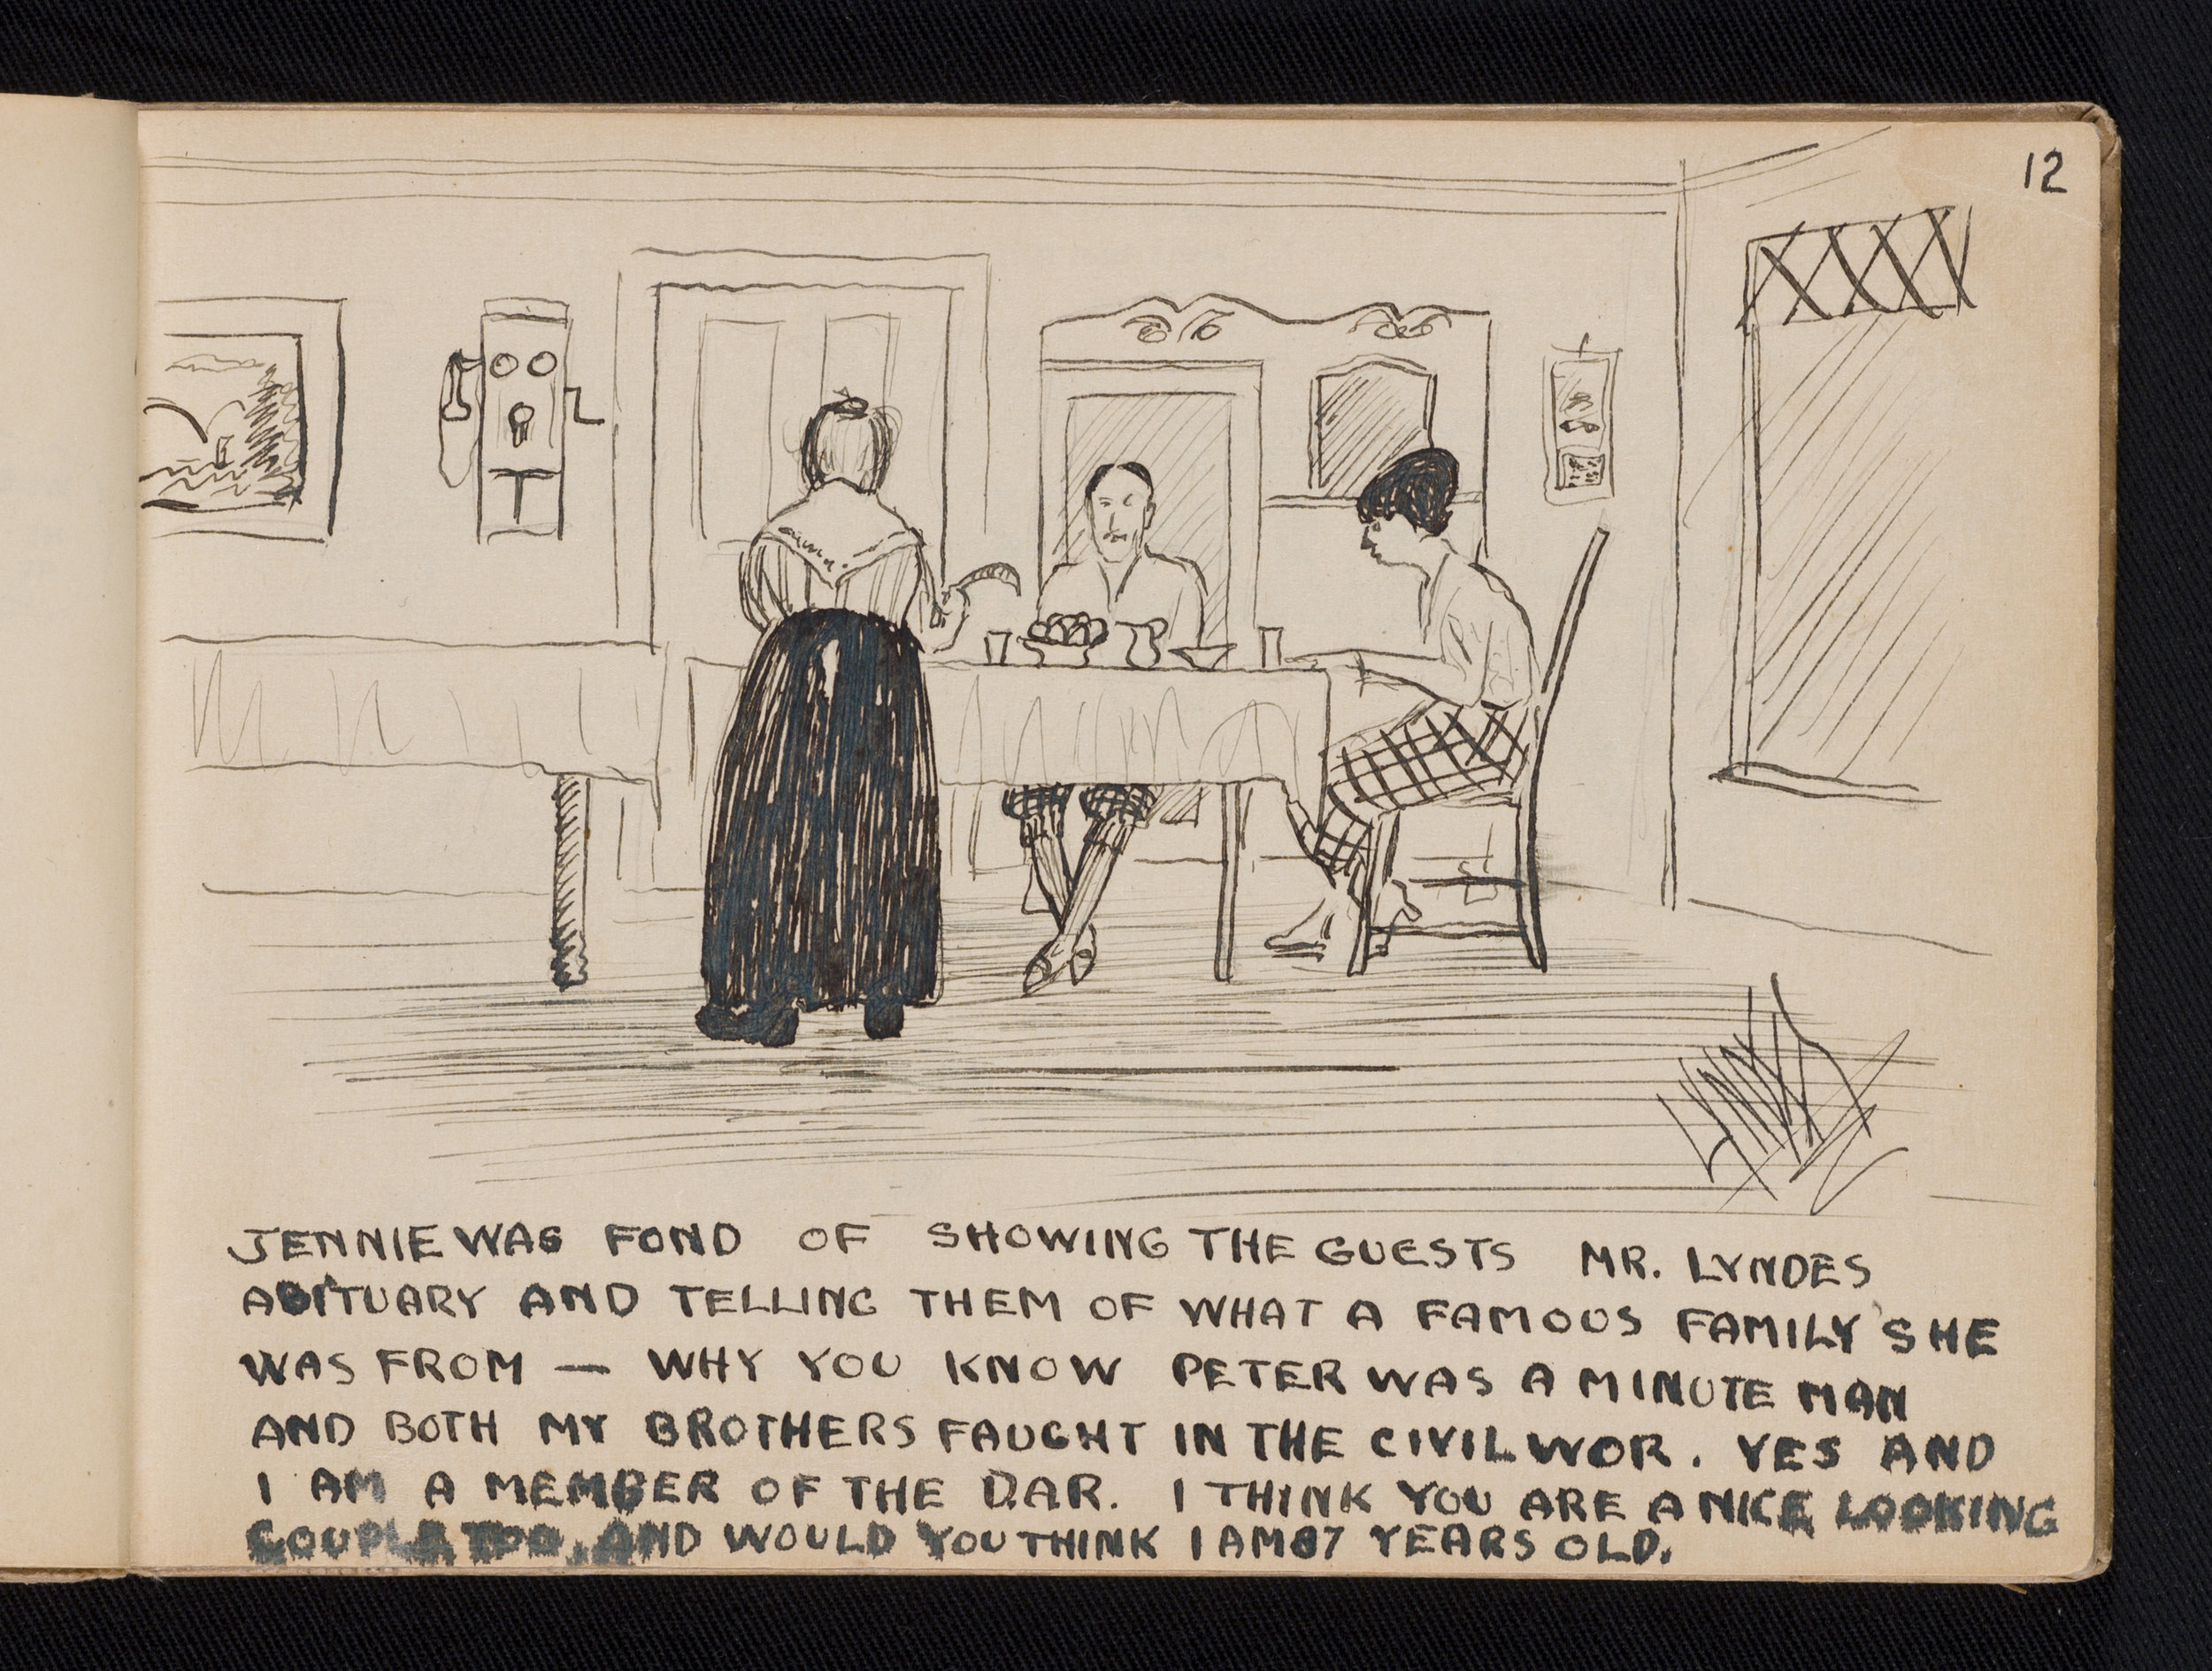 12
JENNIE WAS FOND OF SHOWING THE GUESTS MR. LYNDES
ABITUARY AND TELLING THEM OF WHAT A FAMOUS FAMILY SHE
WAS FROM — WHY YOU KNOW PETER WAS A MINUTE MAN
AND BOTH MY BROTHERS FAUGHT IN THE CIVIL WOR. YES AND
I AM A MEMBER OF THE D.A.R. I THINK YOU ARE A NICE LOOKING
COUPLE TOO, AND WOULD YOU THINK I AM 87 YEARS OLD.